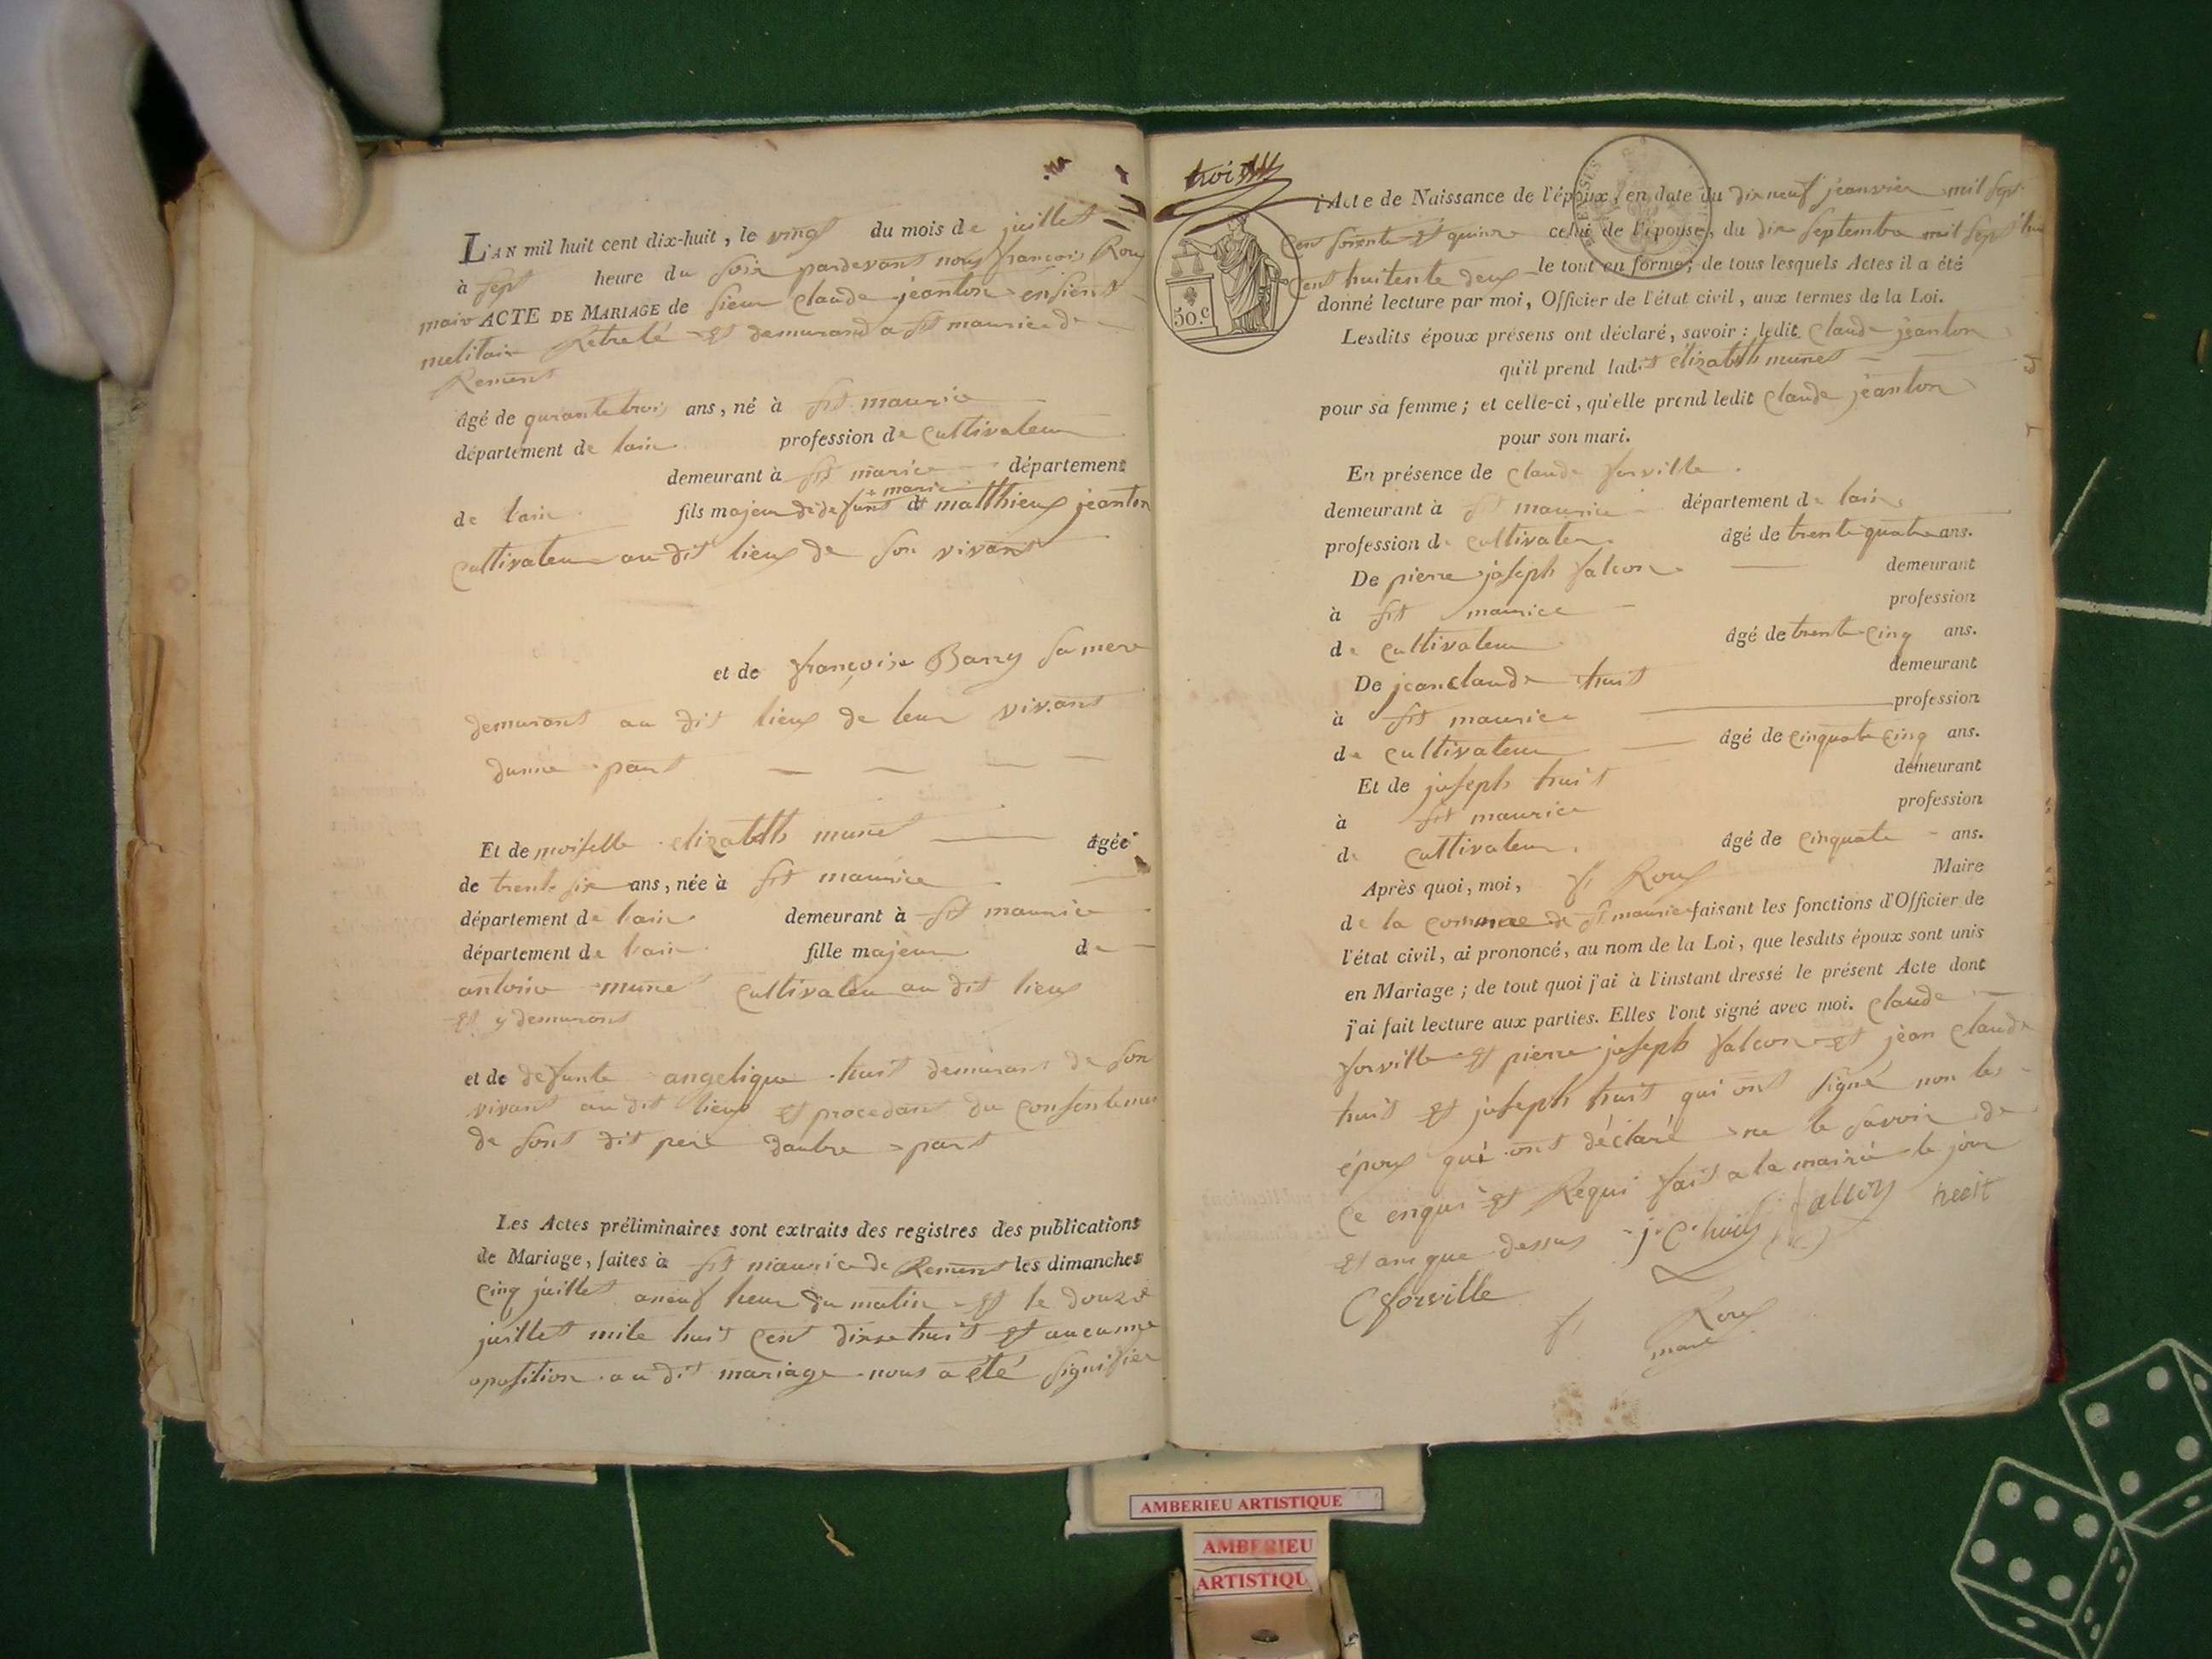 L'AN mil huit cent dix-huit, le vingt du mois de juillet
à sept heure du soir pardevant nous françois Roux
maire ACTE DE MARIAGE de sieur Claude jeanton ensient
melitaire Retreté et demurand a st maurice de
Remens
âgé de qurante trois ans, né à st maurice
département de lain profession de Cultivateur
demeurant à st maurice département
+ marie
de lain fils majeur de defunt matthieux jeanton
Cultivateur au dit lieux de son vivant
et de françoise Barry sa mere
demurant au dit lieux de leur vivant
dunne part
Et de moiselle elizabeth munet âgée
de trente six ans, née à st maurice
département de lain demeurant à st maurice
département de lain fille majeur de
antoine munet Cultivateur au dit lieux
et y demurant
et de defunte angelique huit demurant de son
vivant au dit lieux et procedant du Consentement
de sont dit pere dautre part
Les Actes préliminaires sont extraits des registres des publications
de Mariage, faites à st maurice de Remens les dimanches
Cinq juillet aneuf heur du matin et le douze
juillet mile huit Cent dixse huit et aucunne
oposition au dit mariage nous a été signifier
trois
50.c
l'Acte de Naissance de l'époux, en date du dix neuf jeanvier mil sept
Cent soixente et quinze celui de l'épouse, du dix septembre mil sept
Cent huitente deux le tout en forme; de tous lesquels Actes il a été
donné lecture par moi, Officier de l'état civil, aux termes de la Loi.
Lesdits époux présens ont déclaré, savoir : ledit Claude jeanton
qu'il prend ladit elizabeth munet
pour sa femme; et celle-ci, qu'elle prend ledit Claude jeanton
pour son mari.
En présence de Claude forville
demeurant à st maurice département de lain
profession de Cultivateur âgé de trente quatre ans.
De pierre joseph falcon demeurant
à st maurice profession
de Cultivateur âgé de trente Cinq ans.
De jean claude huit demeurant
à st maurice profession
de Cultivateur âgé de Cinquate Cinq ans.
Et de joseph huit demeurant
à st maurice profession
de Cultivateur âgé de Cinquate ans.
Après quoi, moi, f Roux Maire
de la commune de st maurice faisant les fonctions d'Officier de
l'état civil, ai prononcé, au nom de la Loi, que lesdits époux sont unis
en Mariage; de tout quoi j'ai à l'instant dressé le présent Acte dont
j'ai fait lecture aux parties. Elles l'ont signé avec moi. Claude
forville et pierre joseph falcon et jean Claude
huit et joseph huit qui ont signé non les
époux qui ont déclaré ne le savoir de
Ce enqui et Requi fait a la mairie le jour
et anque dessus j. C. huit falcoz heeit
C forville f Roux
maire
AMBERIEU ARTISTIQUE
AMBERIEU
ARTISTIQU